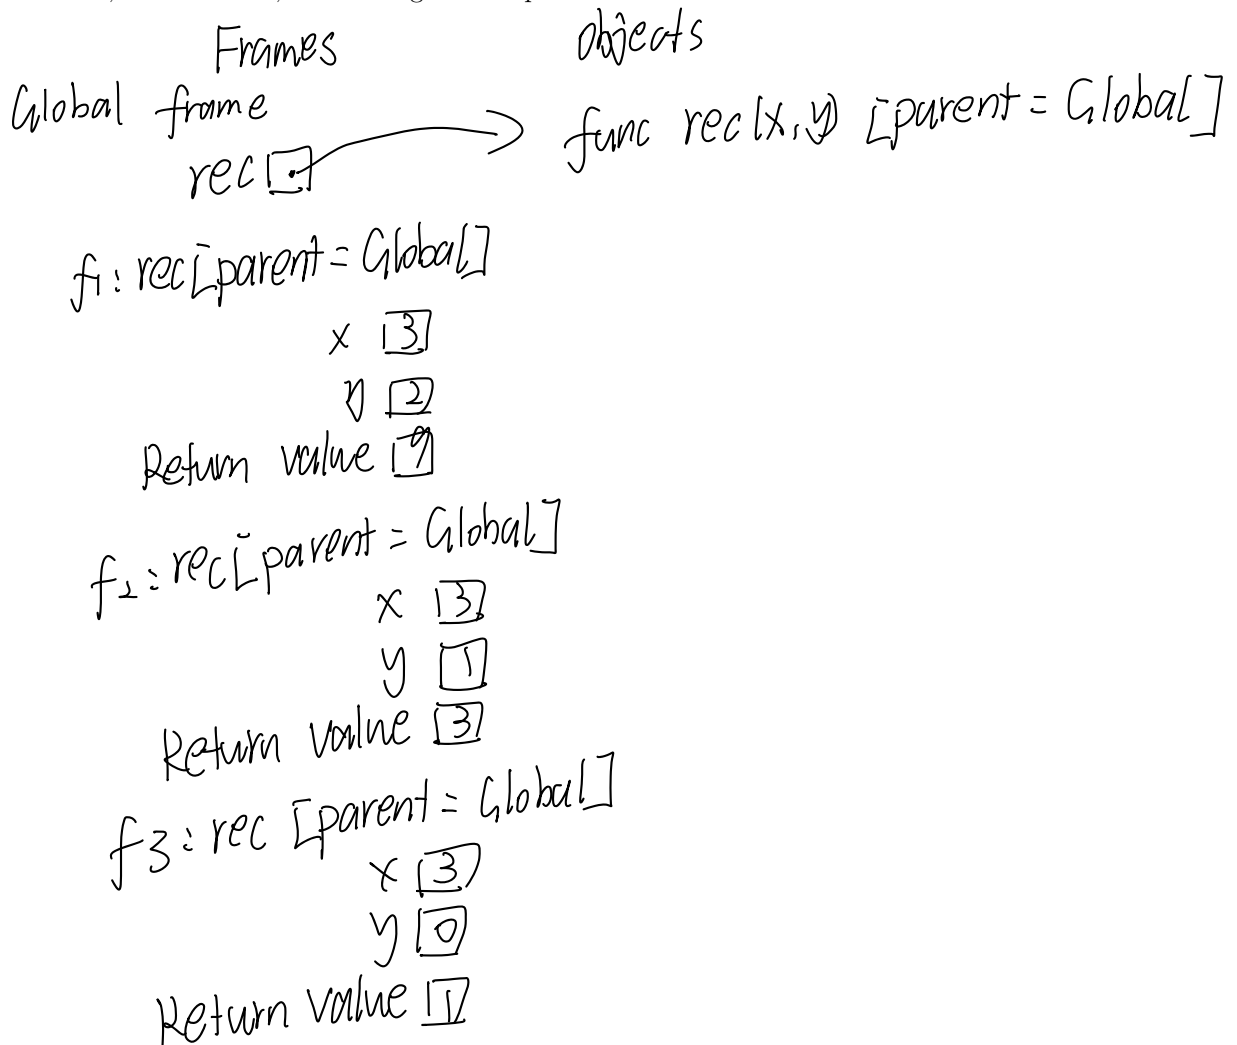 Frames objects
Global frame
rec func rec(x,y) [parent = Global]
f1: rec[parent = Global]
x 3
y 2
Return value 9
f2: rec[parent = Global]
x 3
y 1
Return value 3
f3: rec [parent = Global]
x 3
y 0
Return value 1